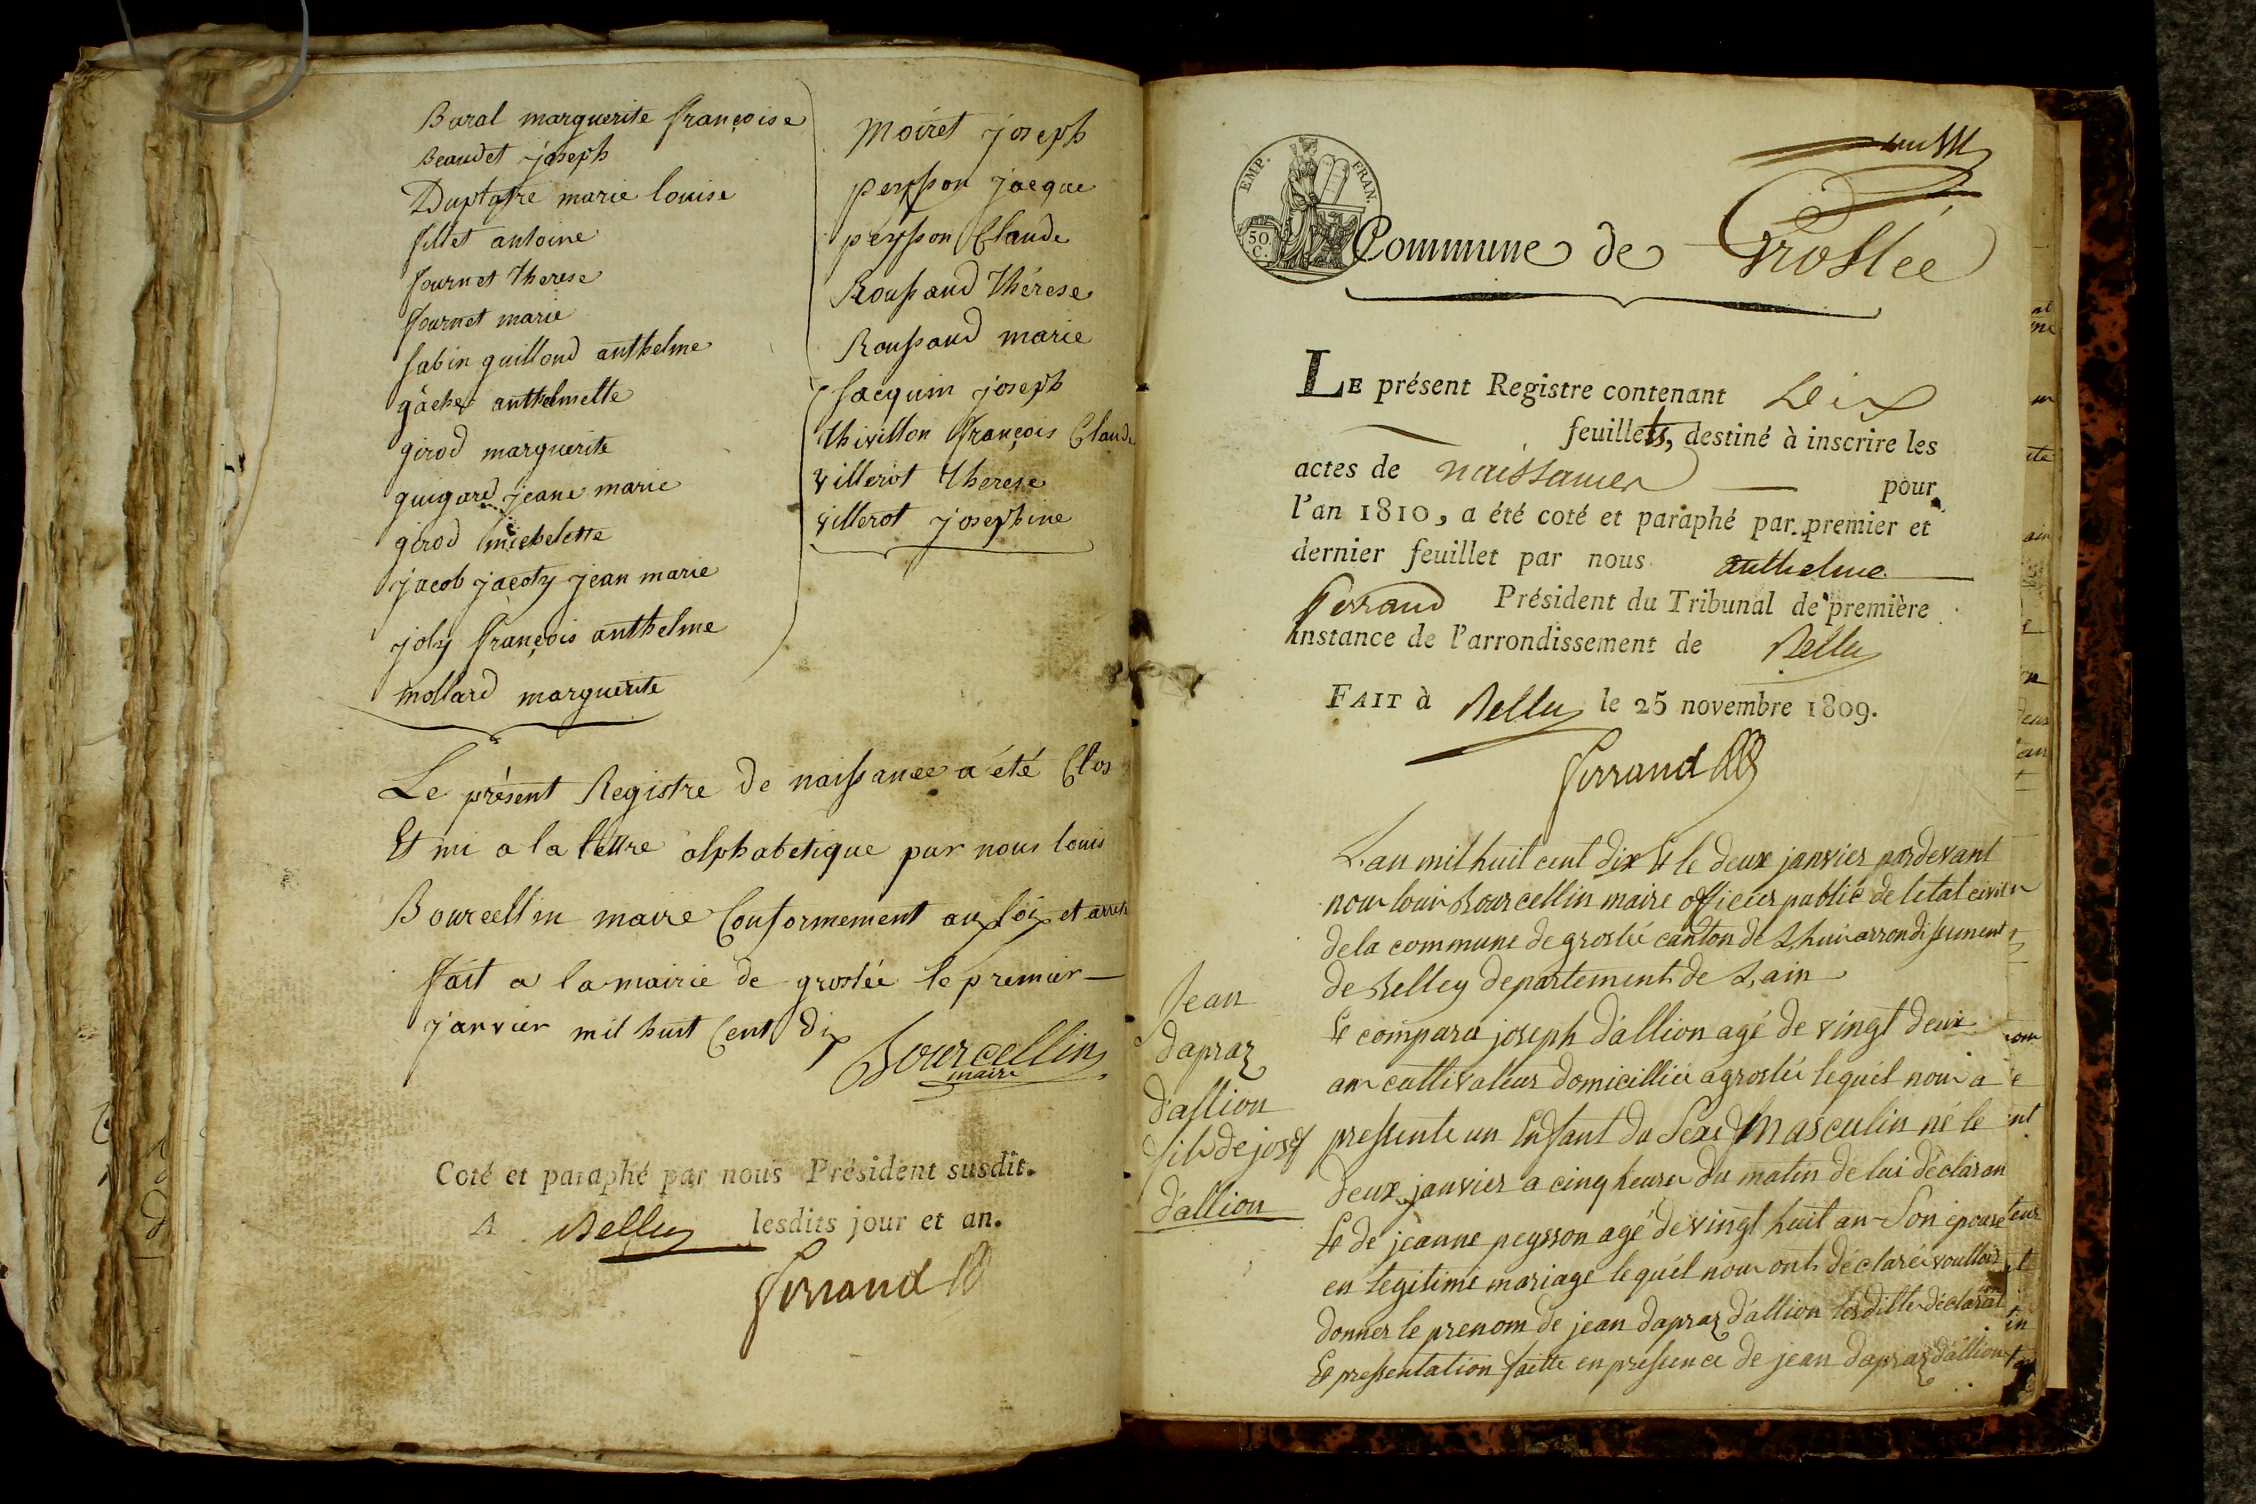 Baral marguerite françoise
Beaudet joseph
marie louise
fillet antoine
fournet therese
fournet marie
fabin guilloud anthelme
gâche anthelmette
girod marguerite
guigard jeane marie
girod michelette
jacob jacoty jean marie
joly françois anthelme
mollard marguerite
Moiret joseph
peysson jacque
peysson Claude
Roussaud thérese
Roussaud marie
Sacquin joseph
thivillon françois Claude
villerot therese
villerot josephine
Le présent Registre de naissance a été Clos
Et mi a la lettre alphabetique par nous louis
Bourcellin maire Conformement aux loix et arret
fait a la mairie de groslée le premier
janvier mil huit Cent dix
Bourcellin
maire
Coté et paraphé par nous Président susdit.
A Belley lesdits jour et an.
Ferrand
EMP. FRAN.
50 C.
Commune de Groslée
LE présent Registre contenant Dix
feuillets, destiné à inscrire les
actes de naissances pour
l'an 1810, a été coté et paraphé par premier et
dernier feuillet par nous anthelme
ferrand Président du Tribunal de première
instance de l'arrondissement de Belley
FAIT à Belley le 25 novembre 1809.
Ferrand
L'an mil huit cent dix & le deux janvier pardevant
nous louis Bourcellin maire officier public de letat civil
de la commune de groslée canton de Lhuis arrondissement
de Belley departement de L'ain
Jean
dapraz
d'allion
fils de josef
d'allion
Et comparu joseph d'allion agé de vingt deux
an cultivateur domicillié a groslée lequél nous a
pressenté un Enfant du Sexe Masculin né le
deux janvier a cinq heures du matin de lui déclaran
Et de jeanne peysson agé de vingt huit an Son épouse
en legitime mariage lequél nous ont déclaré voulloir
donner le prenom de jean dapraz d'allion lesditte déclaration
Et pressentation faitte en pressence de jean dapraz d'allion